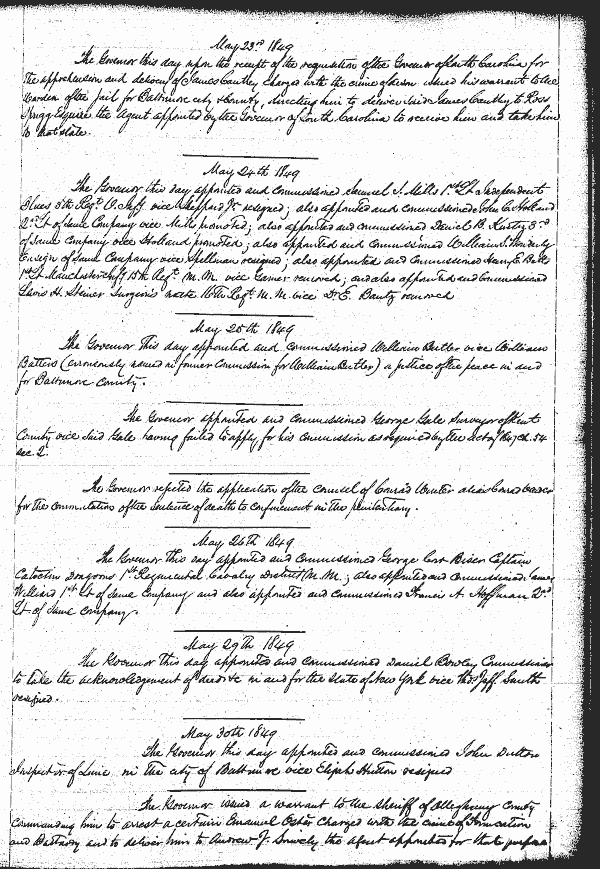 May 23rd 1849
The Governor this day upon the receipt of the requisition of the Governor of South Carolina for
the apprehension and delivery of James Cauthey charged with the crime of issued his warrant to the
Warden of the Jail for Baltimore city & County, directing him to deliver said James Cauthey to Ross
Esquire the Agent appointed by the Governor of South Carolina to receive him and take him
to that state.
May 24th 1849
The Governor this day appointed and commissioned Samuel J. Mills 1st Lt Independent
Blues 5th Regt vice resigned; also appointed and commissioned John C. Holland
2nd Lt of same Company vice Mills promoted; also appointed and commissioned Daniel B. 3rd
of same Company vice Holland promoted; also appointed and commissioned William
Ensign of same Company vice Spellman resigned; also appointed and commissioned E.
1st Lt Manchester 15th Regt. M. M. vice Garner removed; and also appointed and commissioned
Lewis H. Steiner Surgeon's mate 16th Regt M. M. vice E. Bantz removed
May 25th 1849
The Governor this day appointed and commissioned William Butler vice William
Batters (erroneously named in former Commission for William Butler) a justice of the peace in and
for Baltimore County.
The Governor appointed and commissioned George Gale Surveyor of Kent
County vice said Gale having failed to apply for his commission as required by the act of 1847 ch. 54
sec 2.
The Governor rejected the application of the counsel of Conrad Vinter alias Conrad
for the commutation of the sentence of death to confinement in the penitentiary.
May 26th 1849
The Governor this day appointed and commissioned George Biser Captain
Catoctin Dragoons 1st Regimental Cavalry District M. M.; also appointed and commissioned James
Williard 1st Lt of same Company and also appointed and commissioned Francis A. Hoffman 2nd
Lt of same company.
May 29th 1849
The Governor this day appointed and commissioned Daniel Rowley Commissioner
to take the acknowledgement of deeds &c in and for the State of New York vice Thos. Jeff. Smith
resigned.
May 30th 1849
The Governor this day appointed and commissioned John Dutton
Inspector of Lime in the city of Baltimore vice Elijah Hutton resigned
The Governor issued a warrant to the sheriff of Alleghany County
commanding him to arrest a certain Emanuel Oster charged with the crime of Fornication
and Bastardy and to deliver him to Andrew J. Snively the agent appointed for that purpose